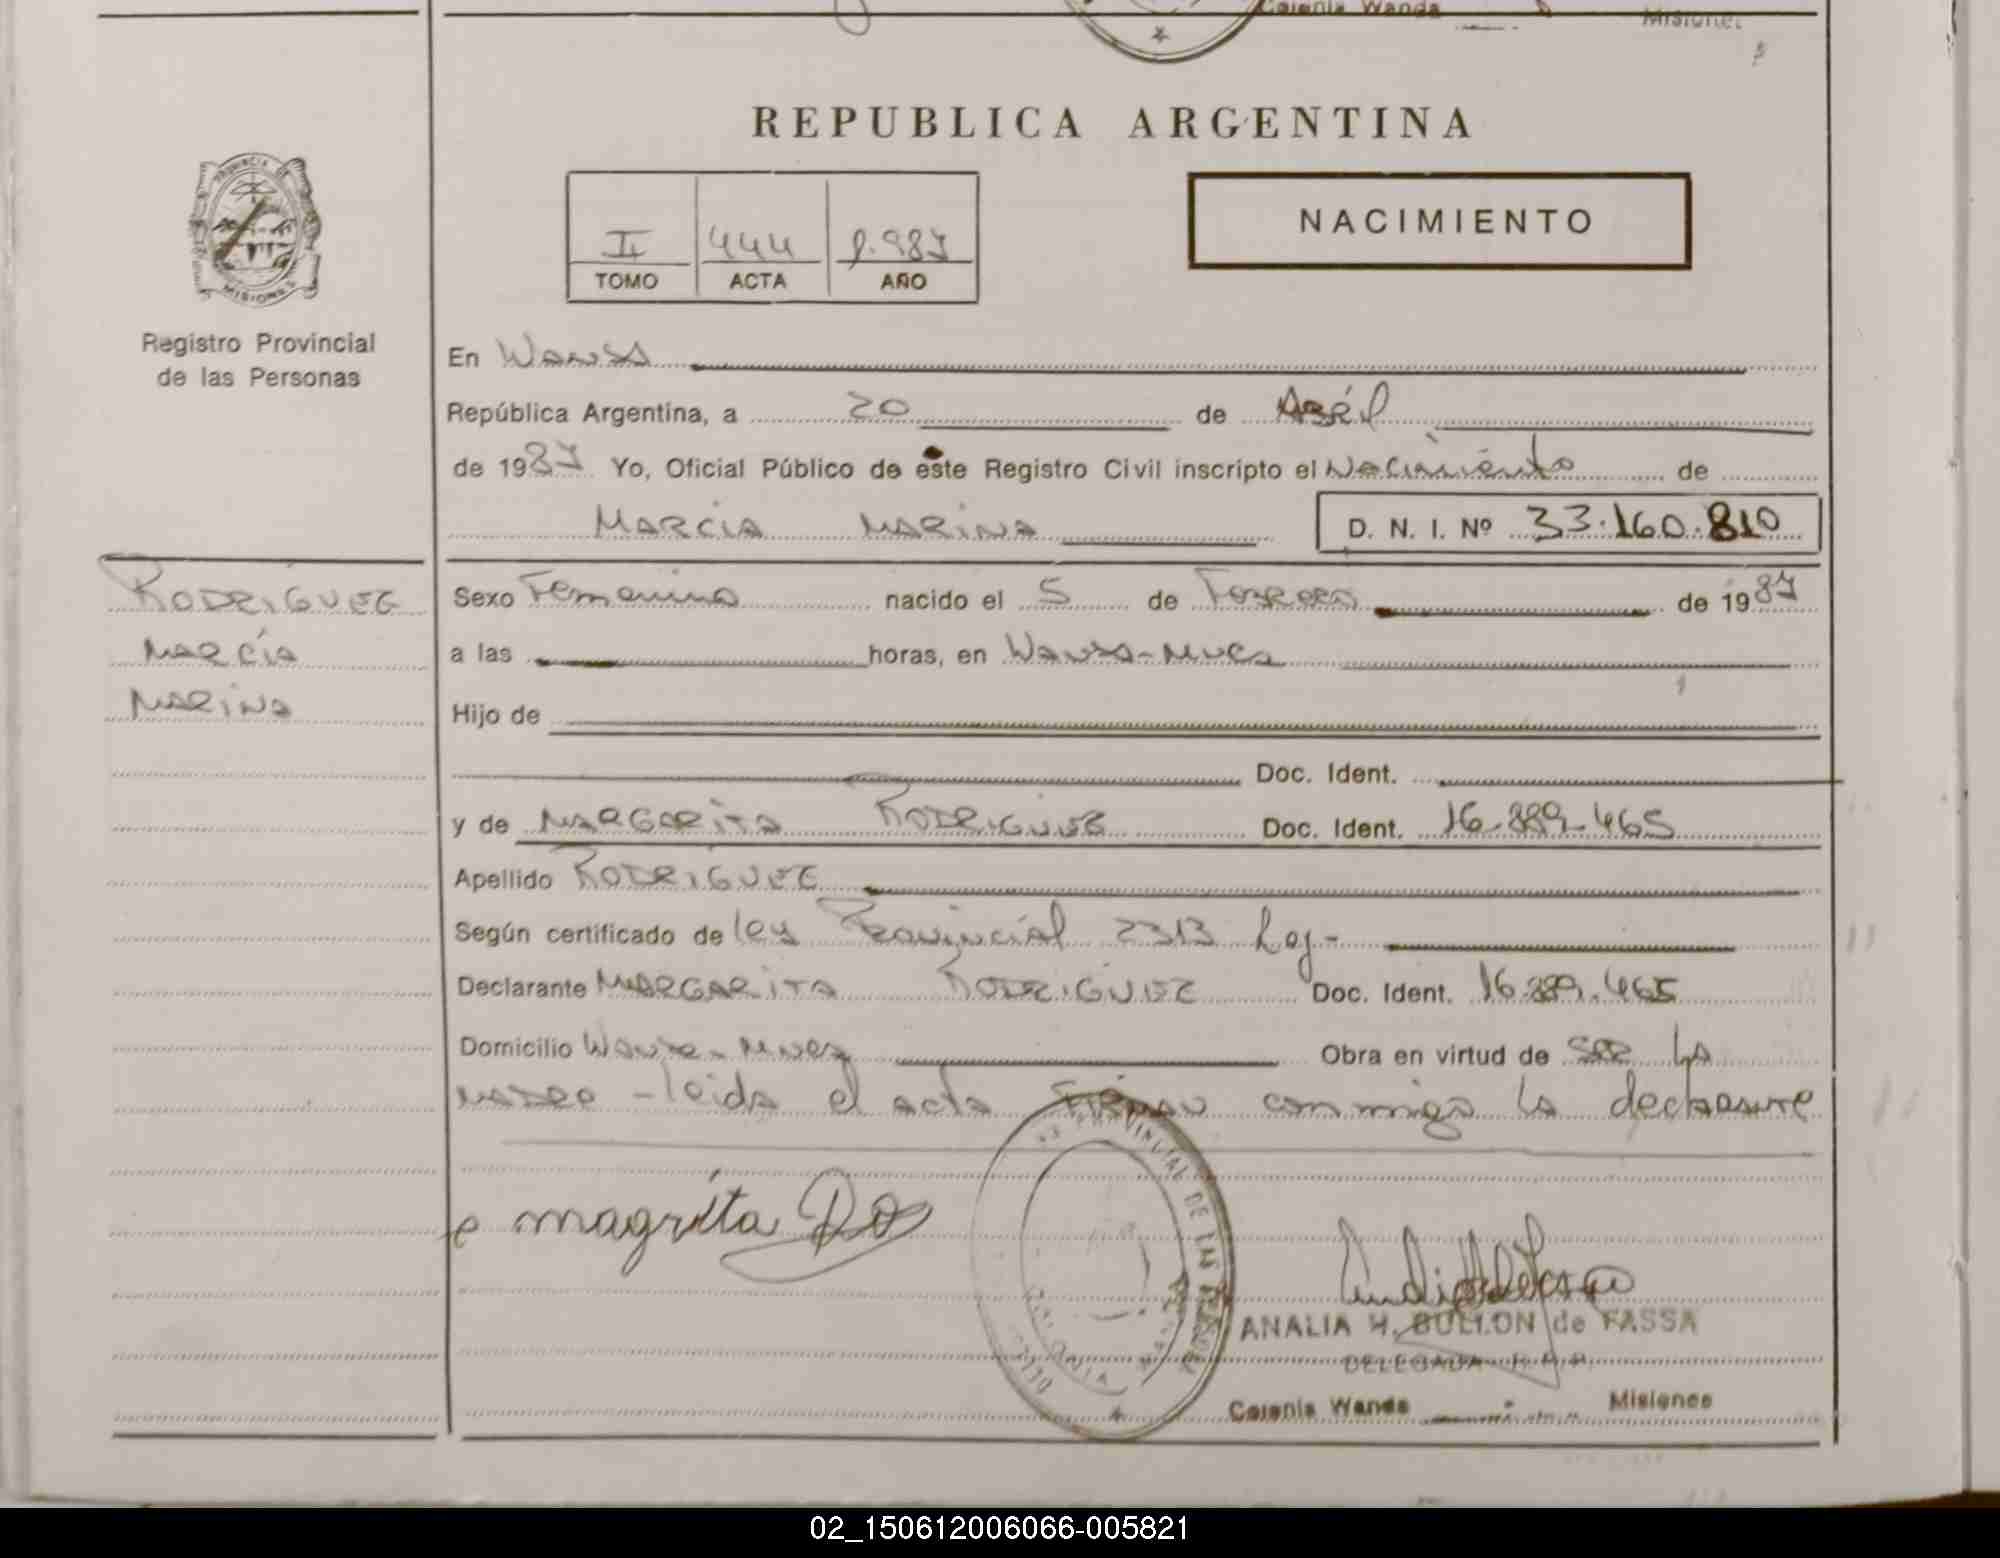 Colonia Wanda Misiones
REPUBLICA ARGENTINA
II 444 1.987
TOMO ACTA AÑO
NACIMIENTO
PROVINCIA DE
MISIONES
Registro Provincial
de las Personas
En Wanda
República Argentina, a 20 de Abril
de 1987 Yo, Oficial Público de este Registro Civil inscripto el Nacimiento de
MARCIA MARINA D. N. I. Nº 33.160.810
RODRIGUEZ
MARCIA
MARINA
Sexo Femenino nacido el 5 de Febrero de 1987
a las horas, en Wanda-
Hijo de
Doc. Ident.
y de MARGARITA RODRIGUEZ Doc. Ident. 16.889.465
Apellido RODRIGUEZ
Según certificado de ley Provincial 2313 Ley-
Declarante MARGARITA RODRIGUEZ Doc. Ident. 16.889.465
Domicilio Wanda- Obra en virtud de ser la
madre - leida el acta Firman conmigo la declarante
magrita Ro
PROVINCIAL DE LAS
ANALIA H. BULLON de FASSA
DELEGADA R.P.P.
Colonia Wanda Misiones
02_150612006066-005821